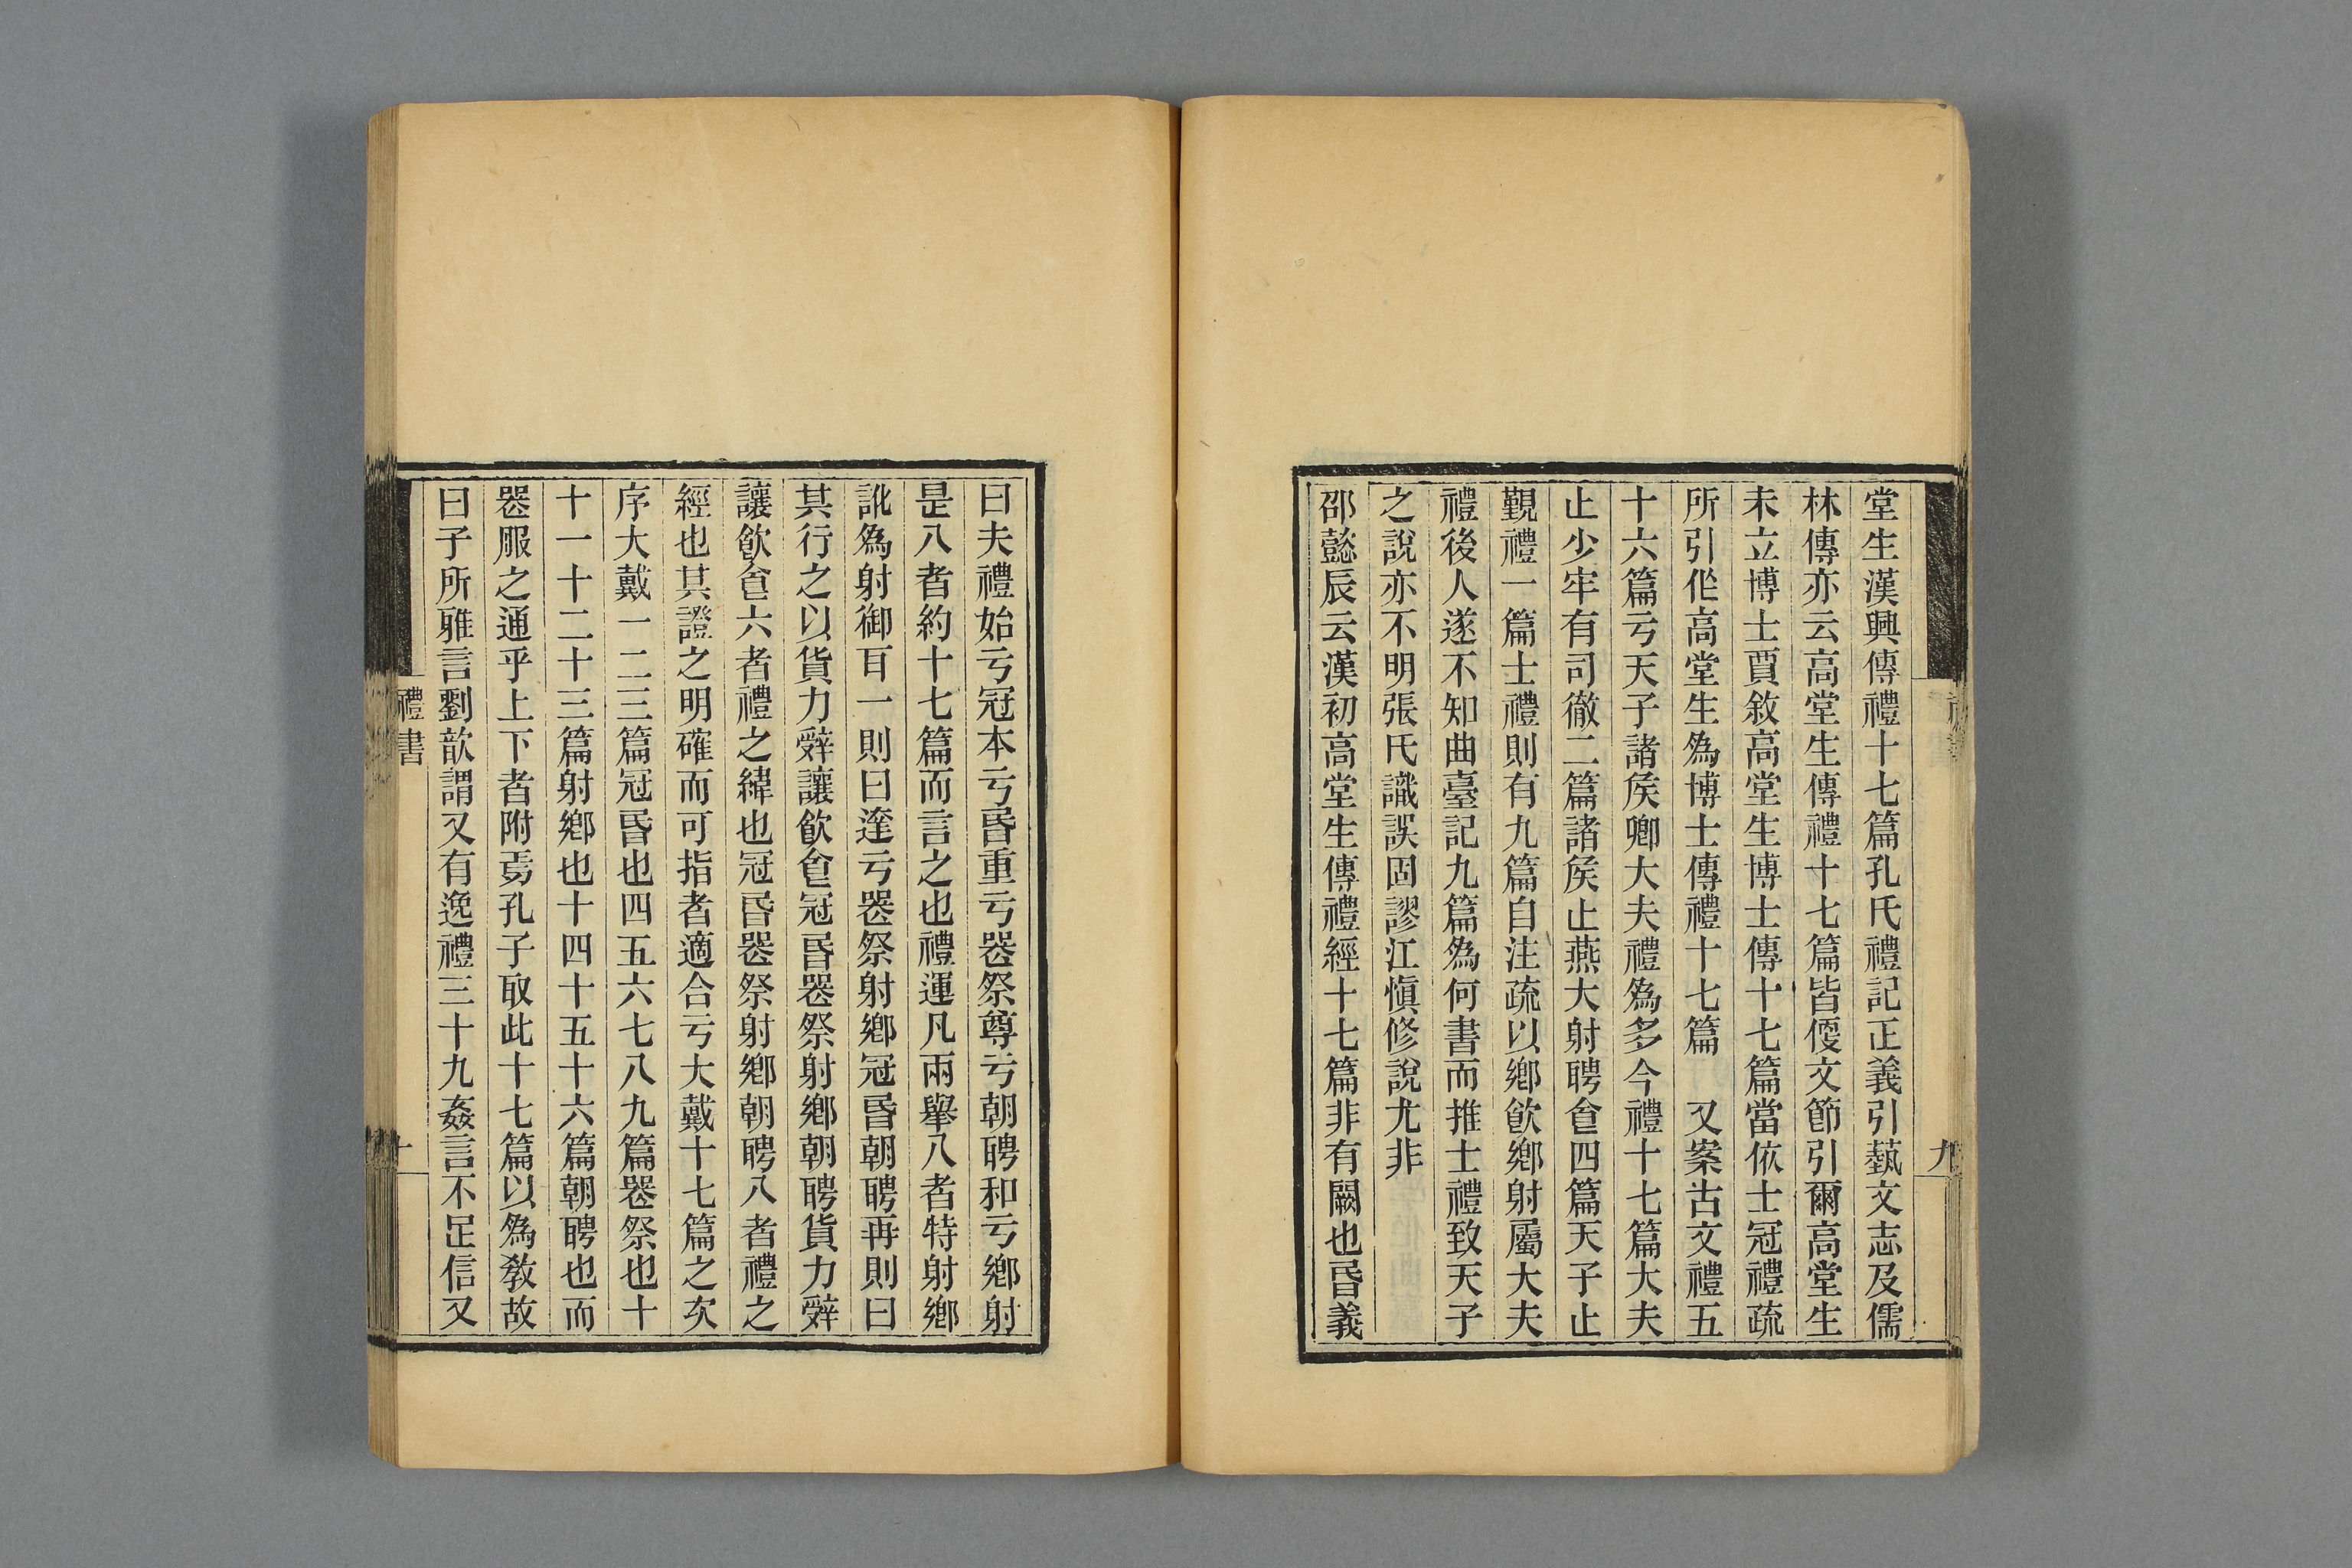 堂生漢興傳禮十七篇孔氏禮記正義引蓺文志及儒
林傳亦云高堂生傳禮十七篇皆偄文節引爾高堂生
未立博士賈敘高堂生博士傳十七篇當依士冠禮疏
所引作高堂生爲博士傳禮十七篇　又案古文禮五
十六篇亏天子諸矦卿大夫禮爲多今禮十七篇大夫
止少牢有司徹二篇諸矦止燕大射聘食四篇天子止
覲禮一篇士禮則有九篇自注疏以鄉飮鄉射屬大夫
禮後人遂不知曲臺記九篇爲何書而推士禮致天子
之說亦不明張氏識誤固謬江愼修說尤非
邵懿辰云漢初高堂生傳禮經十七篇非有闕也昬義
九
曰夫禮始亏冠本亏昬重亏喪祭尊亏朝聘和亏鄉射
是八者約十七篇而言之也禮運凡兩舉八者特射鄉
訛爲射御耳一則曰達亏喪祭射鄉冠昬朝聘再則曰
其行之以貨力辤讓飮食冠昬喪祭射鄉朝聘貨力辤
讓飮食六者禮之緯也冠昬喪祭射鄉朝聘八者禮之
經也其證之明確而可指者適合亏大戴十七篇之次
序大戴一二三篇冠昬也四五六七八九篇喪祭也十
十一十二十三篇射鄉也十四十五十六篇朝聘也而
喪服之通乎上下者附焉孔子取此十七篇以爲敎故
曰子所雅言劉歆謂又有逸禮三十九姦言不足信又
禮書
十